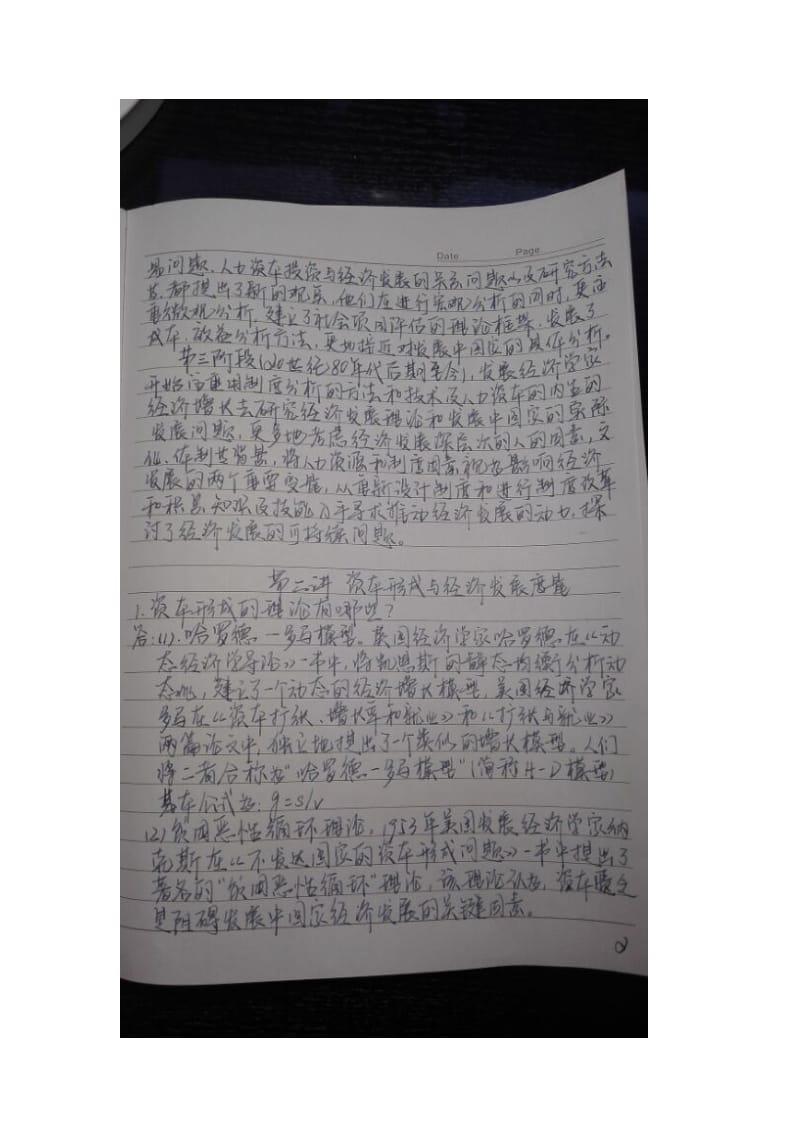 Date Page
易问题、人力资本投资与经济发展的关系问题以及研究方法
等,都提出了新的观点,他们在进行宏观分析的同时,更注
重微观分析,建立了社会项目评估的理论框架,发展了
成本、效益分析方法,更地接近对发展中国家的具体分析。
第三阶段(20世纪80年代后期至今),发展经济学家
开始应用制度分析的方法和技术及人力资本的内生的
经济增长去研究经济发展理论和发展中国家的实际
发展问题,更多地考虑经济发展深层次的人的因素,文
化、体制等背景,将人力资源和制度因素视为影响经济
发展的两个重要变量,从重新设计制度和进行制度改革
和积累知识及技能入手寻求推动经济发展的动力,探
讨了经济发展的可持续问题。
第二讲 资本形成与经济发展度量
1.资本形成的理论有哪些?
答:(1).哈罗德—多马模型。英国经济学家哈罗德在《动
态经济学导论》一书中,将凯恩斯的静态均衡分析动
态化,建立了一个动态的经济增长模型,美国经济学家
多马在《资本扩张、增长率和就业》和《扩张与就业》
两篇论文中,独立地提出了一个类似的增长模型。人们
将二者合称为"哈罗德—多马模型"(简称H-D模型)
基本公式为:g=s/v
(2)贫困恶性循环理论,1953年美国发展经济学家纳
克斯在《不发达国家的资本形成问题》一书中提出了
著名的"贫困恶性循环"理论,该理论认为,资本匮乏
是阻碍发展中国家经济发展的关键因素。
2